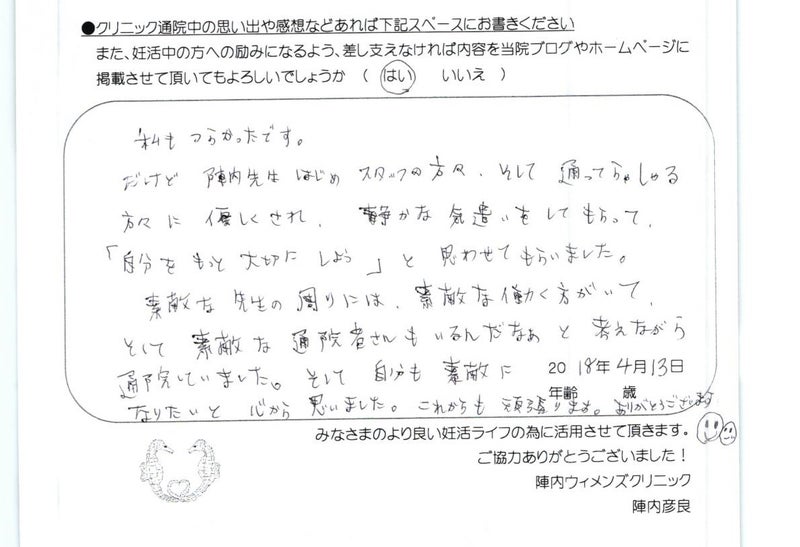 ●クリニック通院中の思い出や感想などあれば下記スペースにお書きください
また、妊活中の方への励みになるよう、差し支えなければ内容を当院ブログやホームページに
掲載させて頂いてもよろしいでしょうか ( はい いいえ )
私も つらかったです。
だけど 陣内先生 はじめ スタッフの方々、そして 通ってらっしゃる
方々に 優しくされ、 静かな 気遣いを してもらって、
「自分を もっと 大切に しよう」と 思わせて もらいました。
素敵な 先生の 周りには、素敵な 働く 方がいて、
そして 素敵な 通院者さんも いるんだなぁ と 考えながら
通院していました。そして 自分も 素敵に
2018年4月13日
年齢 歳
なりたいと 心から 思いました。これからも 頑張ります。ありがとうございます
みなさまのより良い妊活ライフの為に活用させて頂きます。
ご協力ありがとうございました！
陣内ウィメンズクリニック
陣内彦良